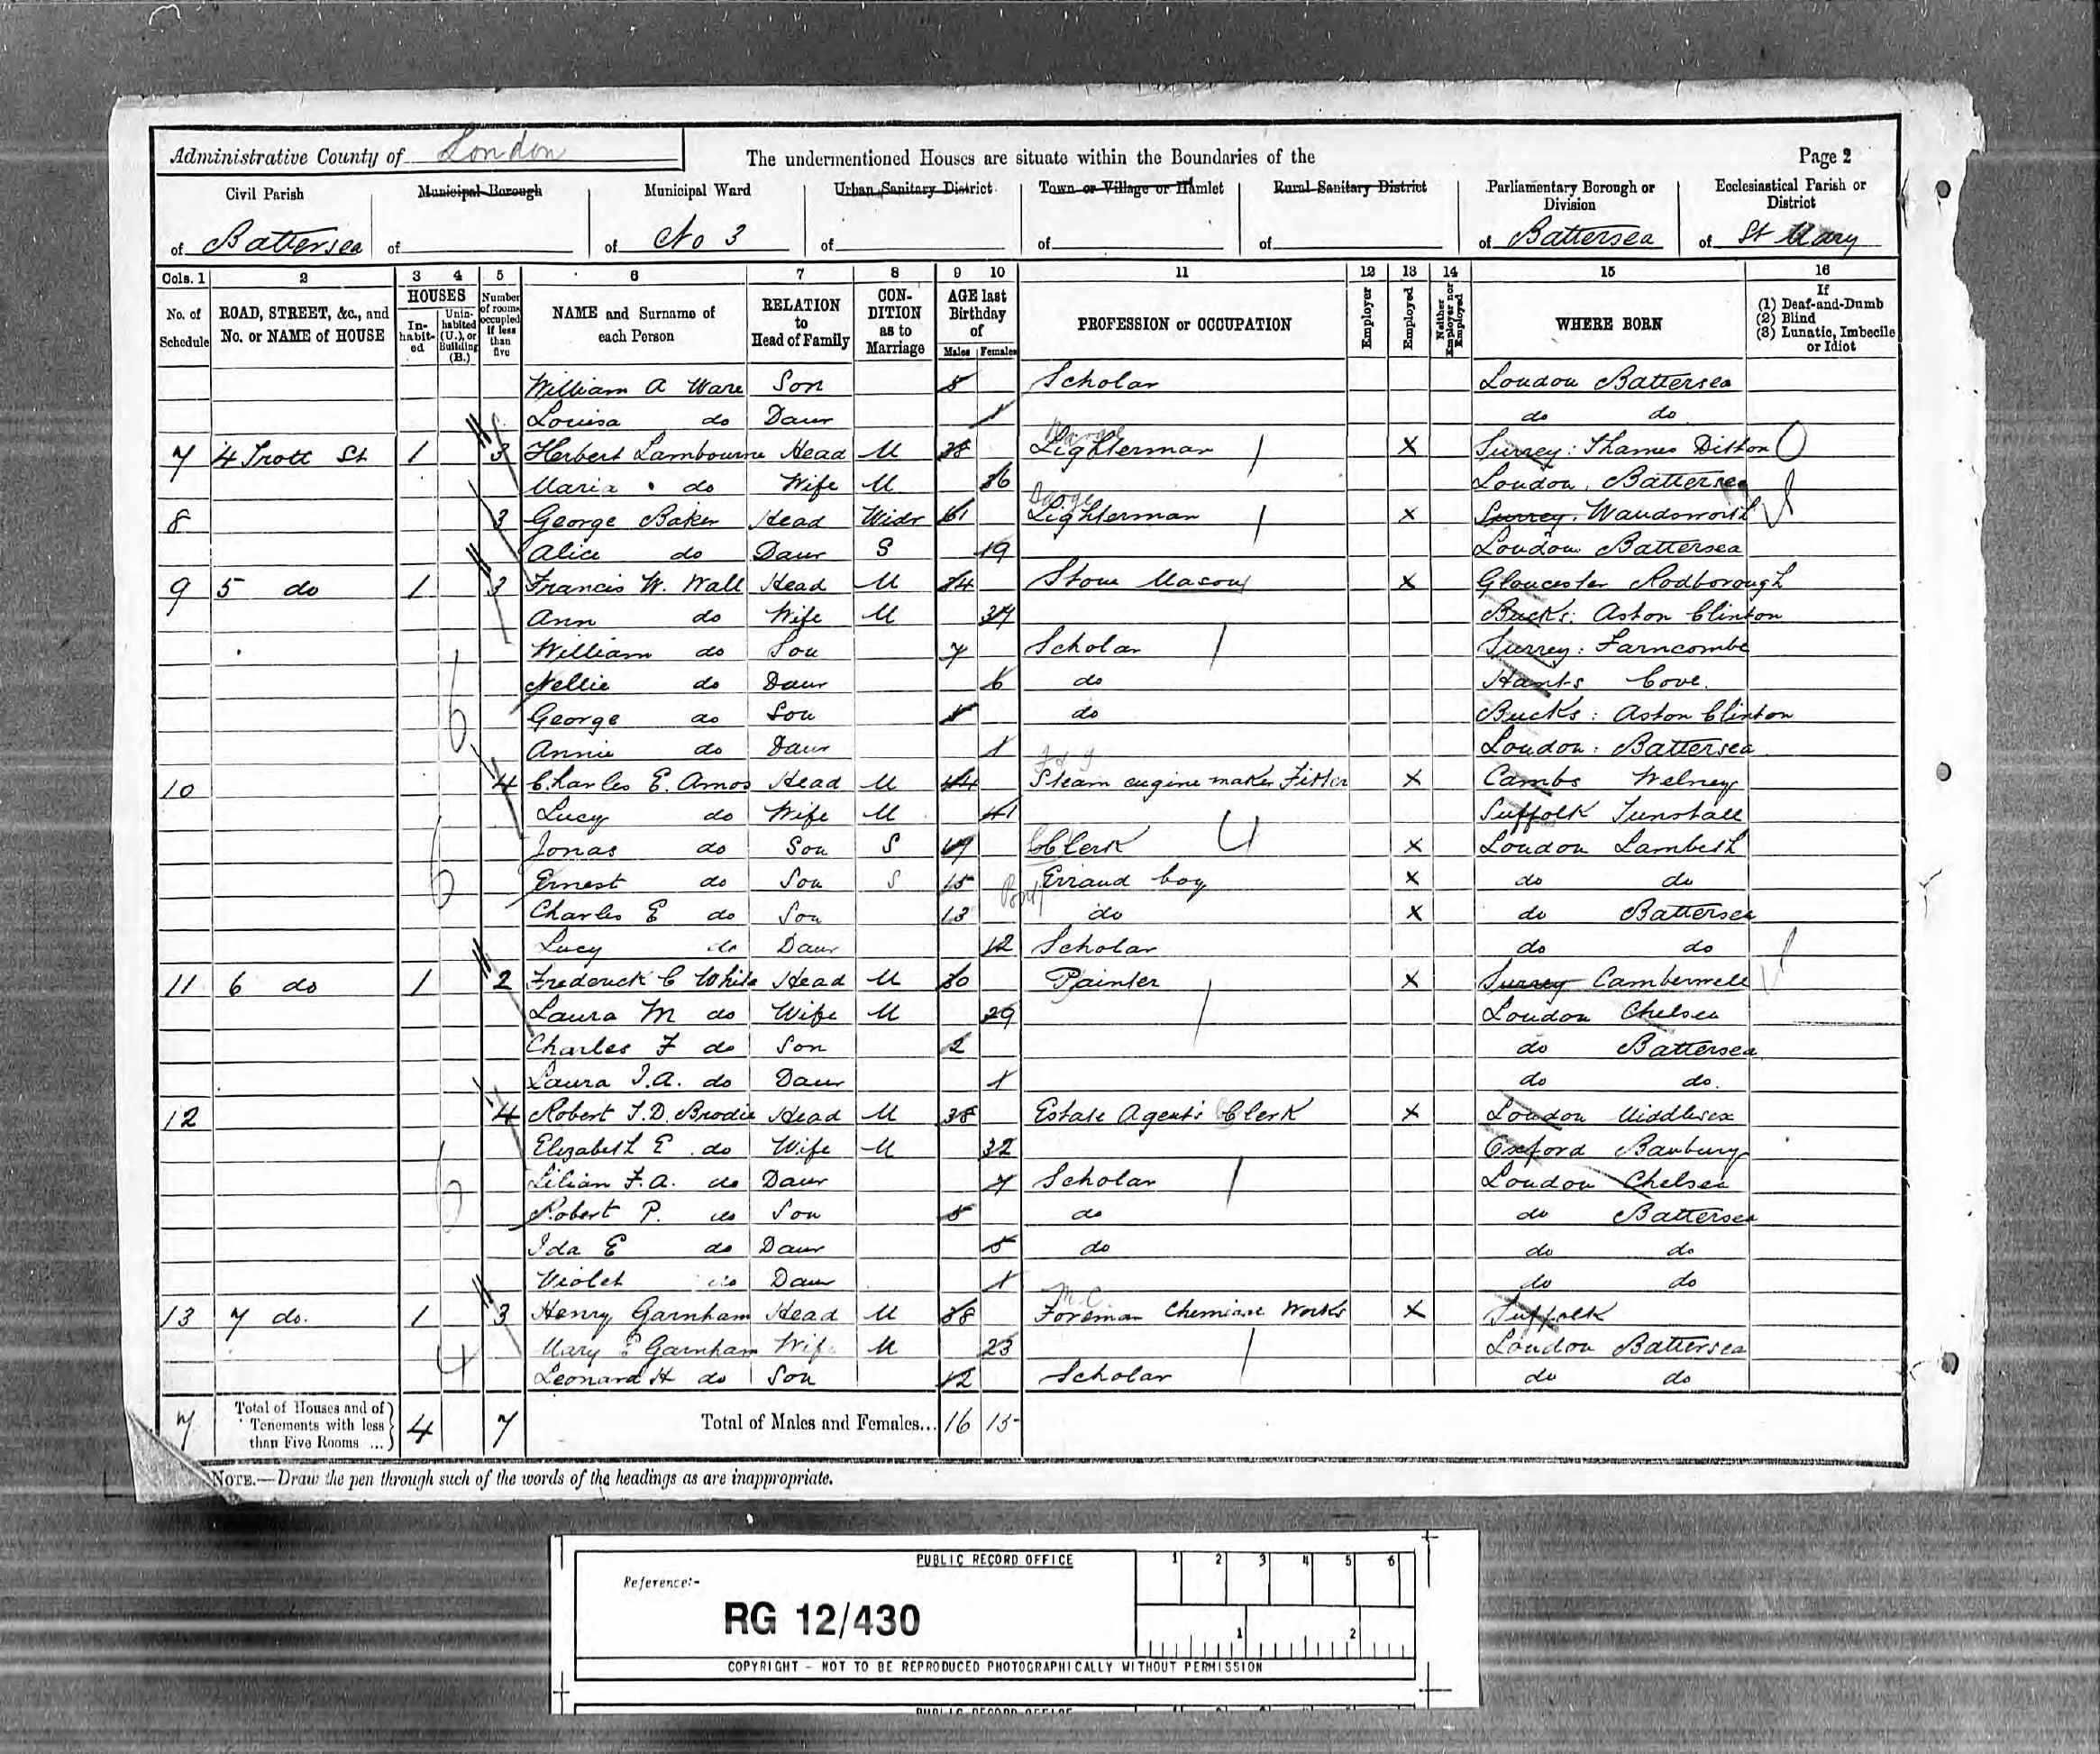 Administrative County of London
The undermentioned Houses are situate within the Boundaries of the
Page 2
Civil Parish of Battersea
Municipal Borough of
Municipal Ward of No 3
Urban Sanitary District of
Town or Village or Hamlet of
Rural Sanitary District of
Parliamentary Borough or Division of Battersea
Ecclesiastical Parish or District of St Mary
Cols. 1 2 3 4 5 6 7 8 9 10 11 12 13 14 15 16
No. of Schedule
ROAD, STREET, &c., and No. or NAME of HOUSE
HOUSES
In-habit-ed
Unin-habited (U.), or Building (B.)
Number of rooms occupied if less than five
NAME and Surname of each Person
RELATION to Head of Family
CON-DITION as to Marriage
AGE last Birthday of
Males Females
PROFESSION or OCCUPATION
Employer
Employed
Neither Employer nor Employed
WHERE BORN
If
(1) Deaf-and-Dumb
(2) Blind
(3) Lunatic, Imbecile or Idiot
William A Ware Son 5 Scholar London Battersea
Louisa do Daur 1 do do
7 4 Trott St 1 3 Herbert Lambourne Head M 38 Lighterman X Surrey: Thames Ditton
Maria do Wife M 36 London, Battersea
8 3 George Baker Head Widr 61 Barge Lighterman X Surrey. Wandsworth
Alice do Daur S 19 London Battersea
9 5 do 1 3 Francis W. Wall Head M 34 Stone Mason X Gloucester Rodborough
Ann do Wife M 34 Bucks: Aston Clinton
William do Son 7 Scholar Surrey: Farncombe
Nellie do Daur 6 do Hants Cove.
George do Son 5 do Bucks: Aston Clinton
Annie do Daur 1 London: Battersea
10 4 Charles E. Amos Head M 44 Steam engine maker Fitter X Cambs Welney
Lucy do Wife M 41 Suffolk Tunstall
Jonas do Son S 19 Clerk X London Lambeth
Ernest do Son S 15 Errand boy X do do
Charles E do Son 13 do X do Battersea
Lucy do Daur 12 Scholar do do
11 6 do 1 2 Frederick C White Head M 30 Painter X Surrey Camberwell
Laura M do Wife M 29 London Chelsea
Charles F do Son 2 do Battersea
Laura J.A. do Daur 1 do do.
12 4 Robert J.D. Brodie Head M 38 Estate Agents Clerk X London Middlesex
Elizabeth E. do Wife M 32 Oxford Banbury
Lilian F.A. do Daur 7 Scholar London Chelsea
Robert P. do Son 5 do do Battersea
Ida E do Daur 5 do do do
Violet do Daur 1 do do
13 7 do. 1 3 Henry Garnham Head M 38 Foreman Chemical Works X Suffolk
Mary E Garnham Wife M 23 London Battersea
Leonard H do Son 12 Scholar do do
7 Total of Houses and of Tenements with less than Five Rooms ... 4 7 Total of Males and Females... 16 15
NOTE.—Draw the pen through such of the words of the headings as are inappropriate.
PUBLIC RECORD OFFICE
1 2 3 4 5 6
Reference:-
RG 12/430
1 2
COPYRIGHT - NOT TO BE REPRODUCED PHOTOGRAPHICALLY WITHOUT PERMISSION